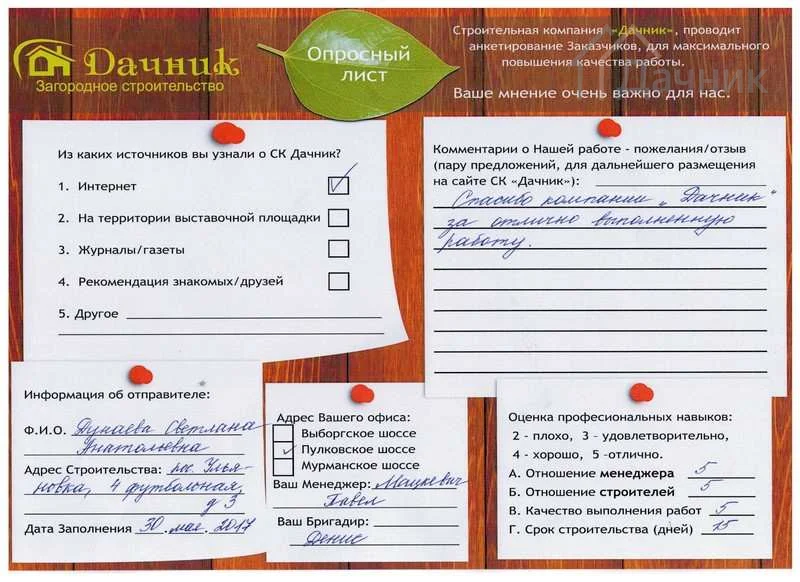 Дачник
Загородное строительство
Опросный
лист
Строительная компания «Дачник», проводит
анкетирование Заказчиков, для максимального
повышения качества работы.
Ваше мнение очень важно для нас.
Дачник
Из каких источников вы узнали о СК Дачник?
1. Интернет
2. На территории выставочной площадки
3. Журналы/газеты
4. Рекомендация знакомых/друзей
5. Другое
Комментарии о Нашей работе - пожелания/отзыв
(пару предложений, для дальнейшего размещения
на сайте СК «Дачник»):
Спасибо компании „Дачник“
за отлично выполненную
работу.
Информация об отправителе:
Ф.И.О. Дунаева Светлана
Анатольевна
Адрес Строительства: пос. Улья-
новка, 4 футбольная,
д 3
Дата Заполнения 30 . мая . 2017
Адрес Вашего офиса:
Выборгское шоссе
Пулковское шоссе
Мурманское шоссе
Ваш Менеджер: Мацкевич
Павел
Ваш Бригадир:
Денис
Оценка професиональных навыков:
2 - плохо, 3 - удовлетворительно,
4 - хорошо, 5 -отлично.
А. Отношение менеджера 5
Б. Отношение строителей 5
В. Качество выполнения работ 5
Г. Срок строительства (дней) 15